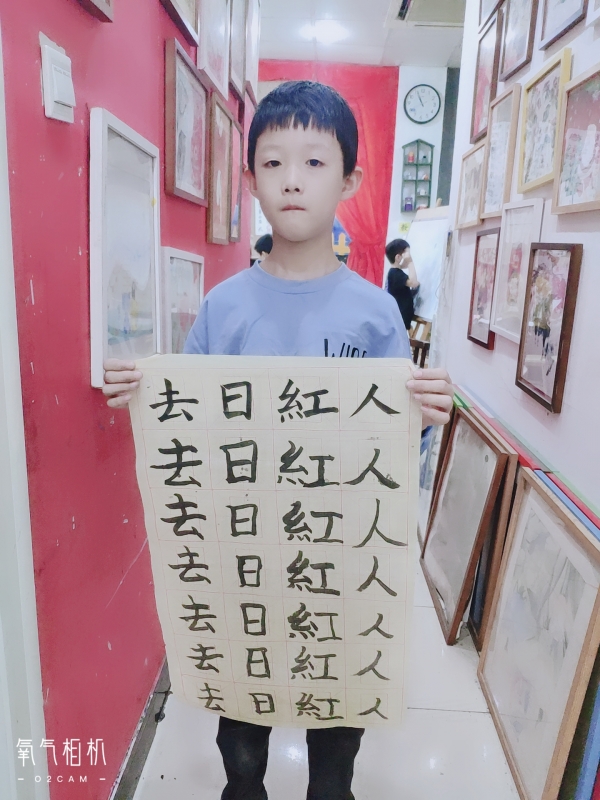 去日紅人
去日紅人
去日紅人
去日紅人
去日紅人
去日紅人
去日紅人
氧气相机
O2CAM